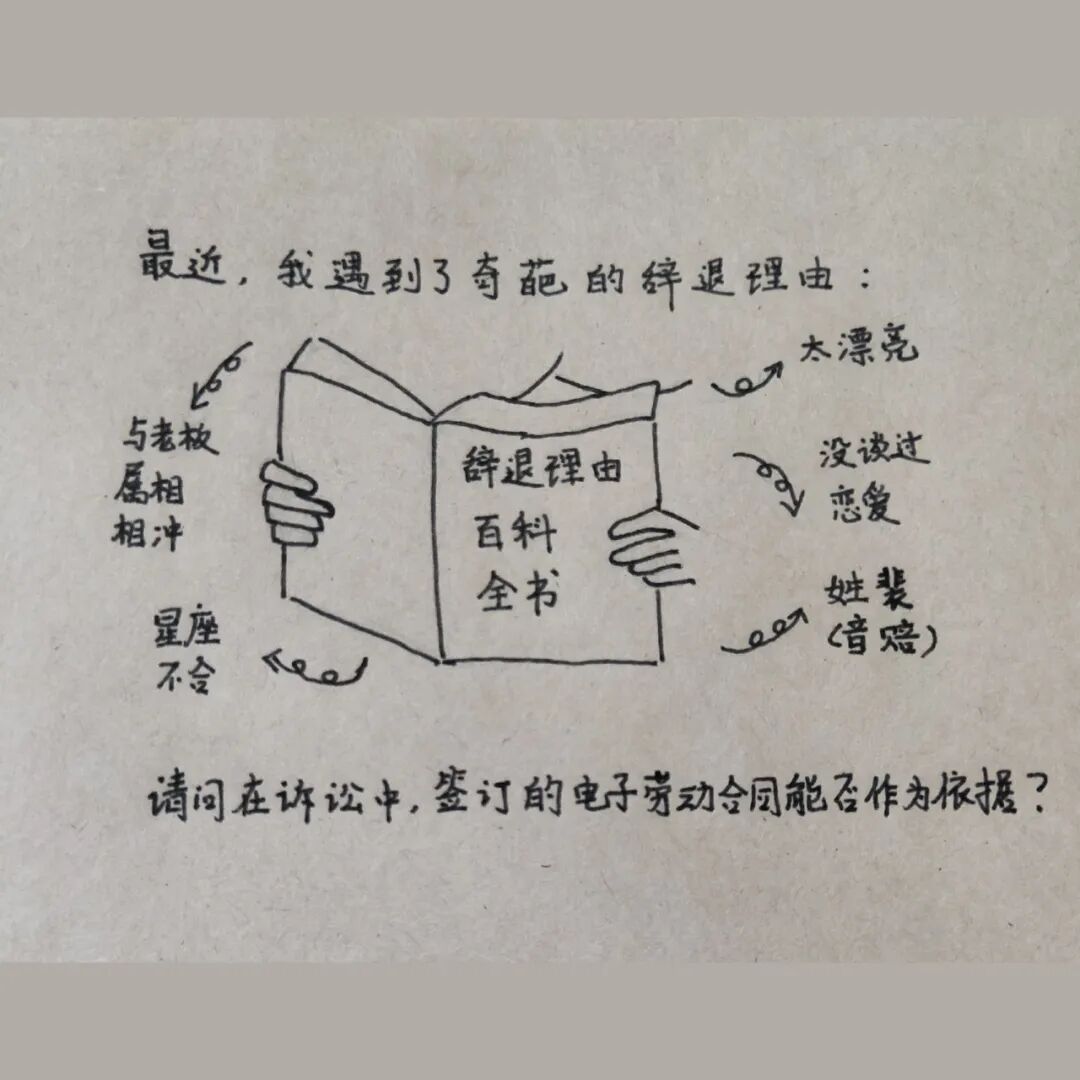 最近，我遇到了奇葩的辞退理由：
太漂亮
与老板
属相
相冲
辞退理由
百科
全书
没谈过
恋爱
星座
不合
姓裴
（音赔）
请问在诉讼中，签订的电子劳动合同能否作为依据？